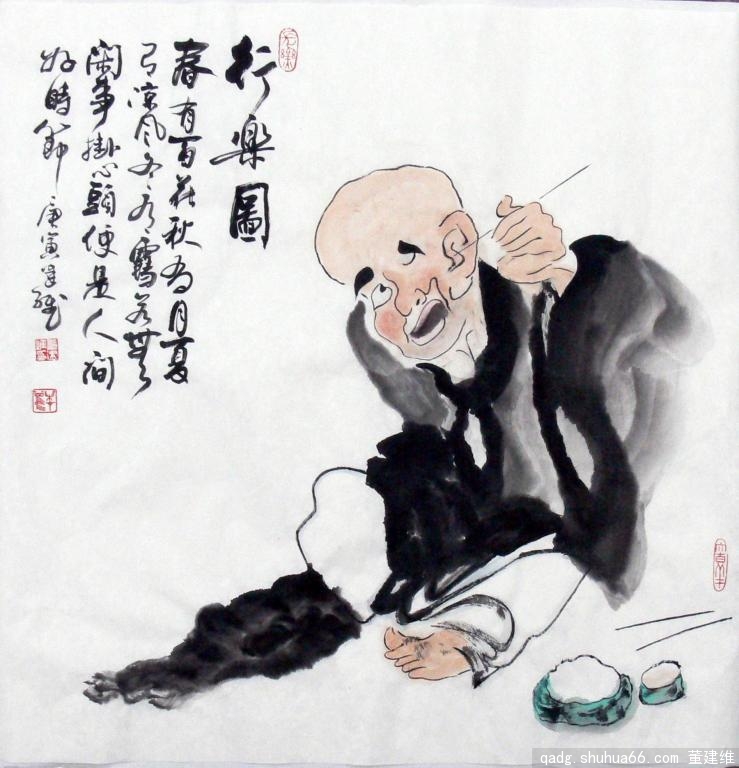 行樂圖
春有百花秋有月夏
有涼風冬有雪若無
閑事掛心頭便是人間
好時節 庚寅建維
qadg.shuhua66.com 董建维